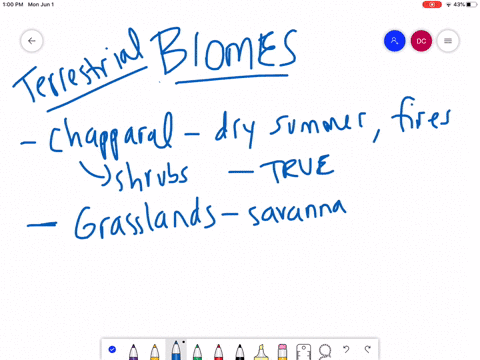 1:00 PM Mon Jun 1
43%
DC
Terrestrial BIOMES
- Chapparal - dry summer, fires
shrubs - TRUE
- Grasslands - savanna